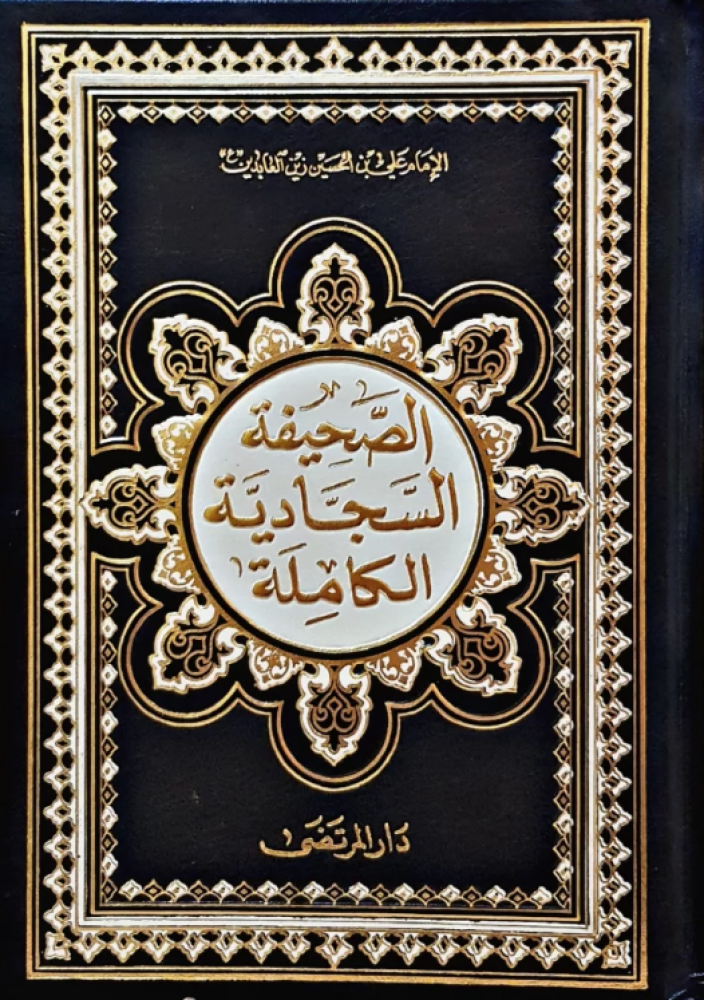 الإمام علي بن الحسين زين العابدين "ع"
الصَّحِيفة
السَّجَّاديَّة
الكامِلَة
دَار المرتَضَى